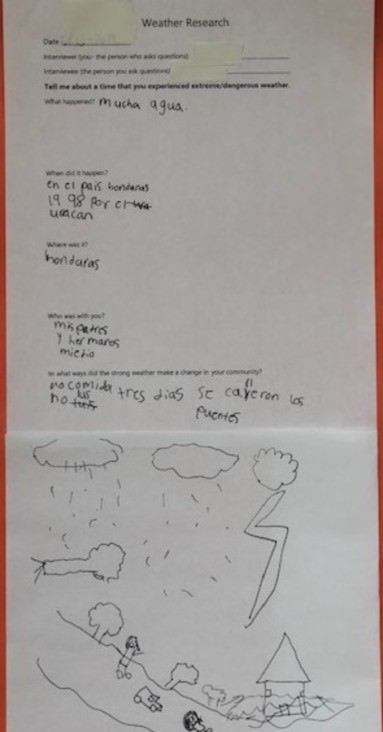 Weather Research
Date
Interviewer (you- the person who asks questions)
Interviewee (the person you ask questions)
Tell me about a time that you experienced extreme/dangerous weather.
What happened? mucha agua.
When did it happen?
en el pais honduras
1998 por el
uracan
Where was it?
honduras
Who was with you?
mis patres
y hermanos
mietio
In what ways did the strong weather make a change in your community?
no comida tres dias se caieron los
no lus puentes